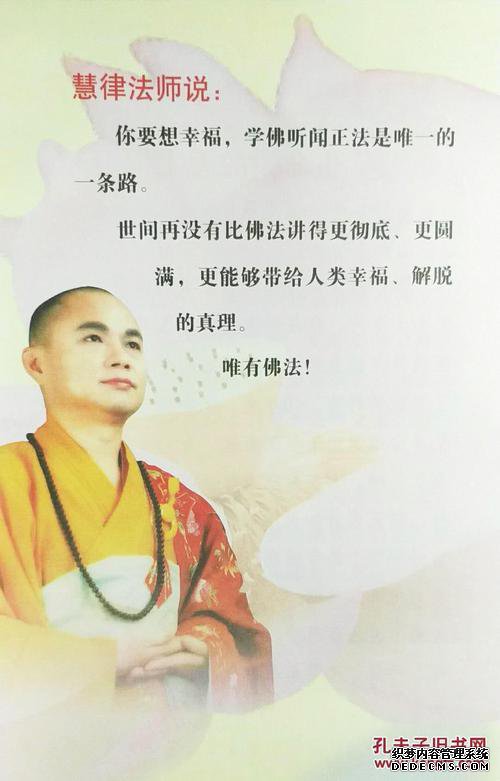 慧律法师说：
你要想幸福，学佛听闻正法是唯一的
一条路。
世间再没有比佛法讲得更彻底、更圆
满，更能够带给人类幸福、解脱
的真理。
唯有佛法！
孔夫子旧书网
织梦内容管理系统
DEDECMS.COM